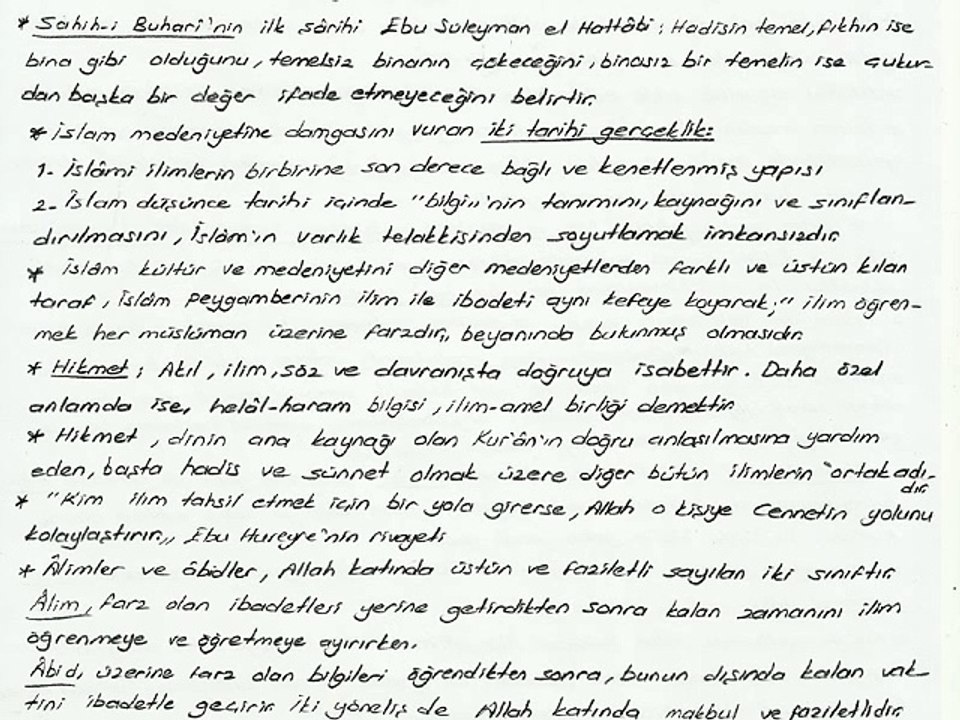 * Sahih-i Buhari'nin ilk şârihi Ebu Süleyman el Hattâbi; Hadisin temel, fıkhın ise
bina gibi olduğunu, temelsiz binanın çökeceğini, binasız bir temelin ise çukur-
dan başka bir değer ifade etmeyeceğini belirtir.
* İslam medeniyetine damgasını vuran iki tarihi gerçeklik:
1- İslâmi ilimlerin birbirine son derece bağlı ve kenetlenmiş yapısı
2- İslam düşünce tarihi içinde "bilgi"'nin tanımını, kaynağını ve sınıflan-
dırılmasını, İslâm'ın varlık telakkisinden soyutlamak imkansızdır.
* İslâm kültür ve medeniyetini diğer medeniyetlerden farklı ve üstün kılan
taraf, İslâm Peygamberinin ilim ile ibadeti aynı kefeye koyarak; "ilim öğren-
mek her müslüman üzerine farzdır" beyanında bulunmuş olmasıdır.
* Hikmet; Akıl, ilim, söz ve davranışta doğruya isabettir. Daha özel
anlamda ise, helâl-haram bilgisi, ilim-amel birliği demektir.
* Hikmet, dinin ana kaynağı olan Kur'ân'ın doğru anlaşılmasına yardım
eden, başta hadis ve sünnet olmak üzere diğer bütün ilimlerin "ortak adı-
dır
* "Kim ilim tahsil etmek için bir yola girerse, Allah o kişiye Cennetin yolunu
kolaylaştırır" Ebu Hureyre'nin rivayeti
* Âlimler ve âbidler, Allah katında üstün ve faziletli sayılan iki sınıftır.
Âlim, farz olan ibadetleri yerine getirdikten sonra kalan zamanını ilim
öğrenmeye ve öğretmeye ayırırken.
Âbid, üzerine farz olan bilgileri öğrendikten sonra, bunun dışında kalan vak-
tini ibadetle geçirir. İki yöneliş de Allah katında makbul ve faziletlidir.